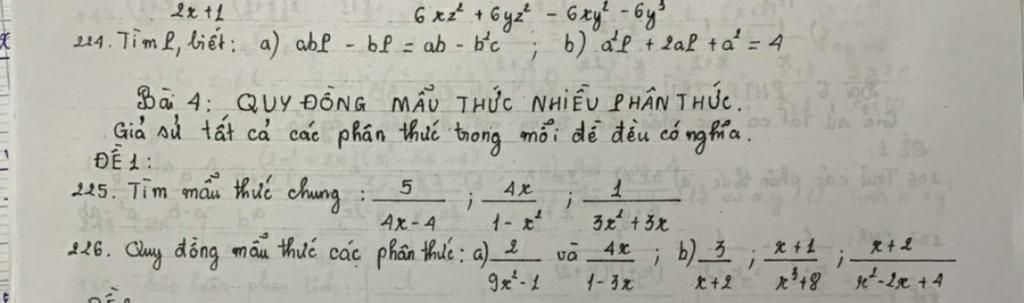 2x+1 6xz² + 6yz² - 6xy² - 6y³
224. Tìm P, biết: a) abP - bP = ab - b²c ; b) a²P + 2aP + a² = 4
Bài 4: QUY ĐỒNG MẪU THỨC NHIỀU PHÂN THỨC.
Giả sử tất cả các phân thức trong mỗi đề đều có nghĩa.
ĐỀ 1:
225. Tìm mẫu thức chung : 5/(4x-4) ; 4x/(1-x²) ; 1/(3x²+3x)
226. Quy đồng mẫu thức các phân thức: a) 2/(9x²-1) và 4x/(1-3x) ; b) 3/(x+2) ; (x+1)/(x³+8) ; (x+2)/(x²-2x+4)